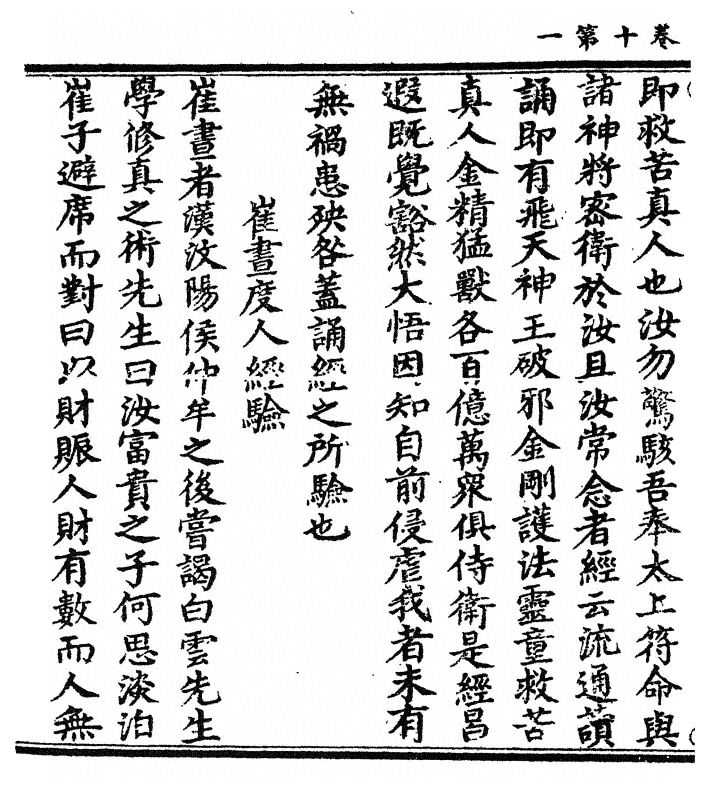 卷十第一
即救苦真人也汝勿驚駭吾奉太上符命與
諸神將密衛於汝且汝常念者經云流通讀
誦即有飛天神王破邪金剛護法靈童救苦
真人金精猛獸各百億萬眾俱侍衛是經昌
遐既覺豁然大悟因知自前侵虐我者未有
無禍患殃咎蓋誦經之所驗也
崔晝度人經驗
崔晝者漢汶陽侯仲牟之後嘗謁白雲先生
學修真之術先生曰汝富貴之子何思淡泊
崔子避席而對曰以財賑人財有數而人無